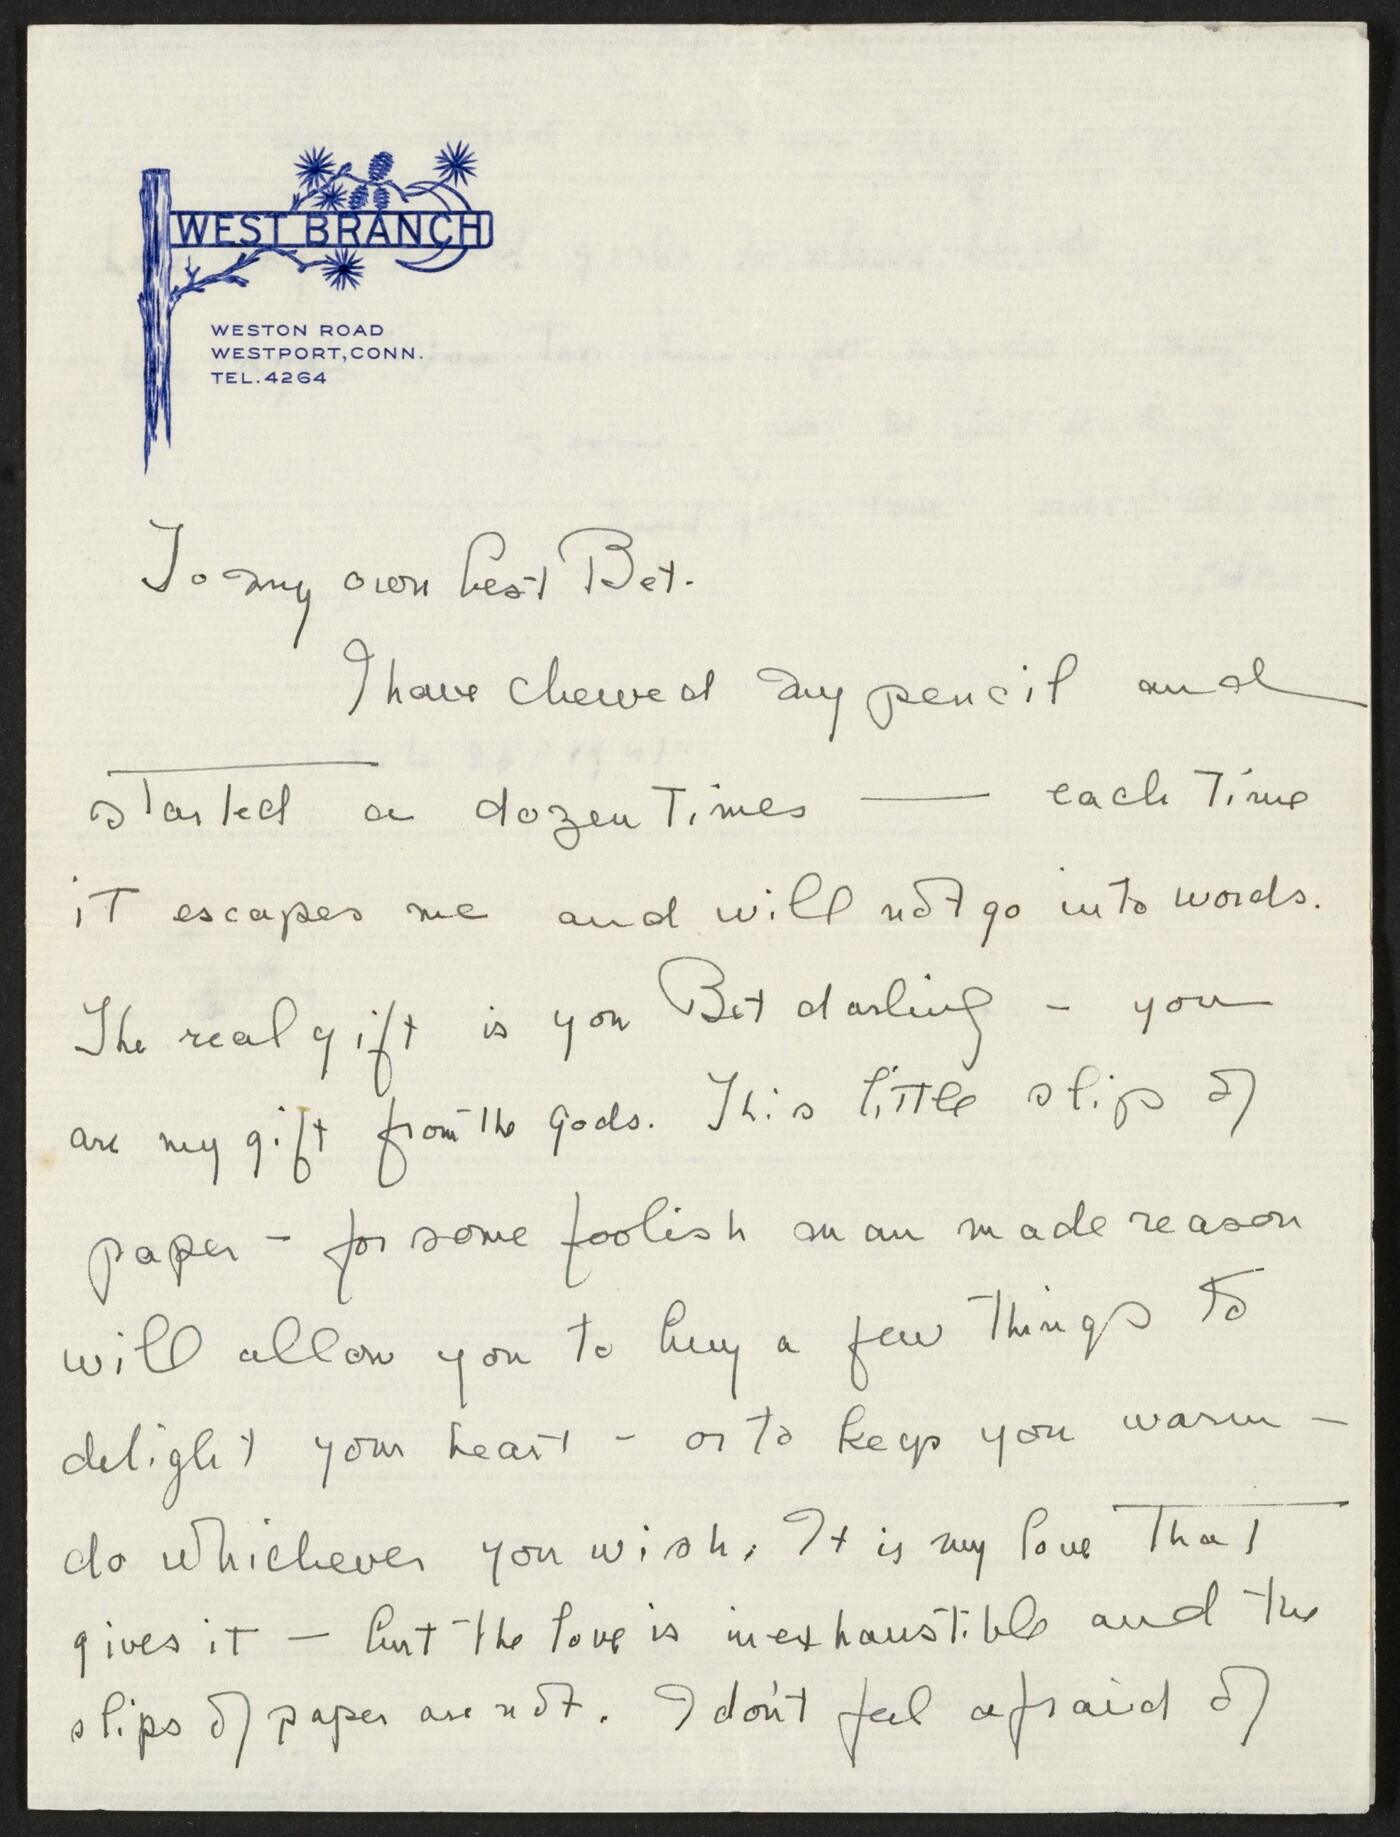 WEST BRANCH
WESTON ROAD
WESTPORT, CONN.
TEL. 4264
To my own best Bet.
I have chewed my pencil and
started a dozen times — each time
it escapes me and will not go into words.
The real gift is you Bet darling - you
are my gift from the gods. This little slip of
paper - for some foolish man made reason
will allow you to buy a few things to
delight your heart - or to keep you warm -
do whichever you wish. It is my love that
gives it - but the love is inexhaustible and the
slips of paper are not. I don't feel afraid of